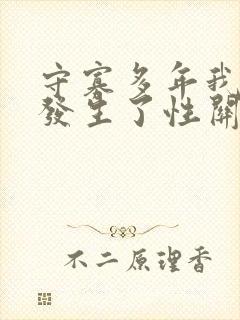 守寡多年我
發生了性關
不二原理香